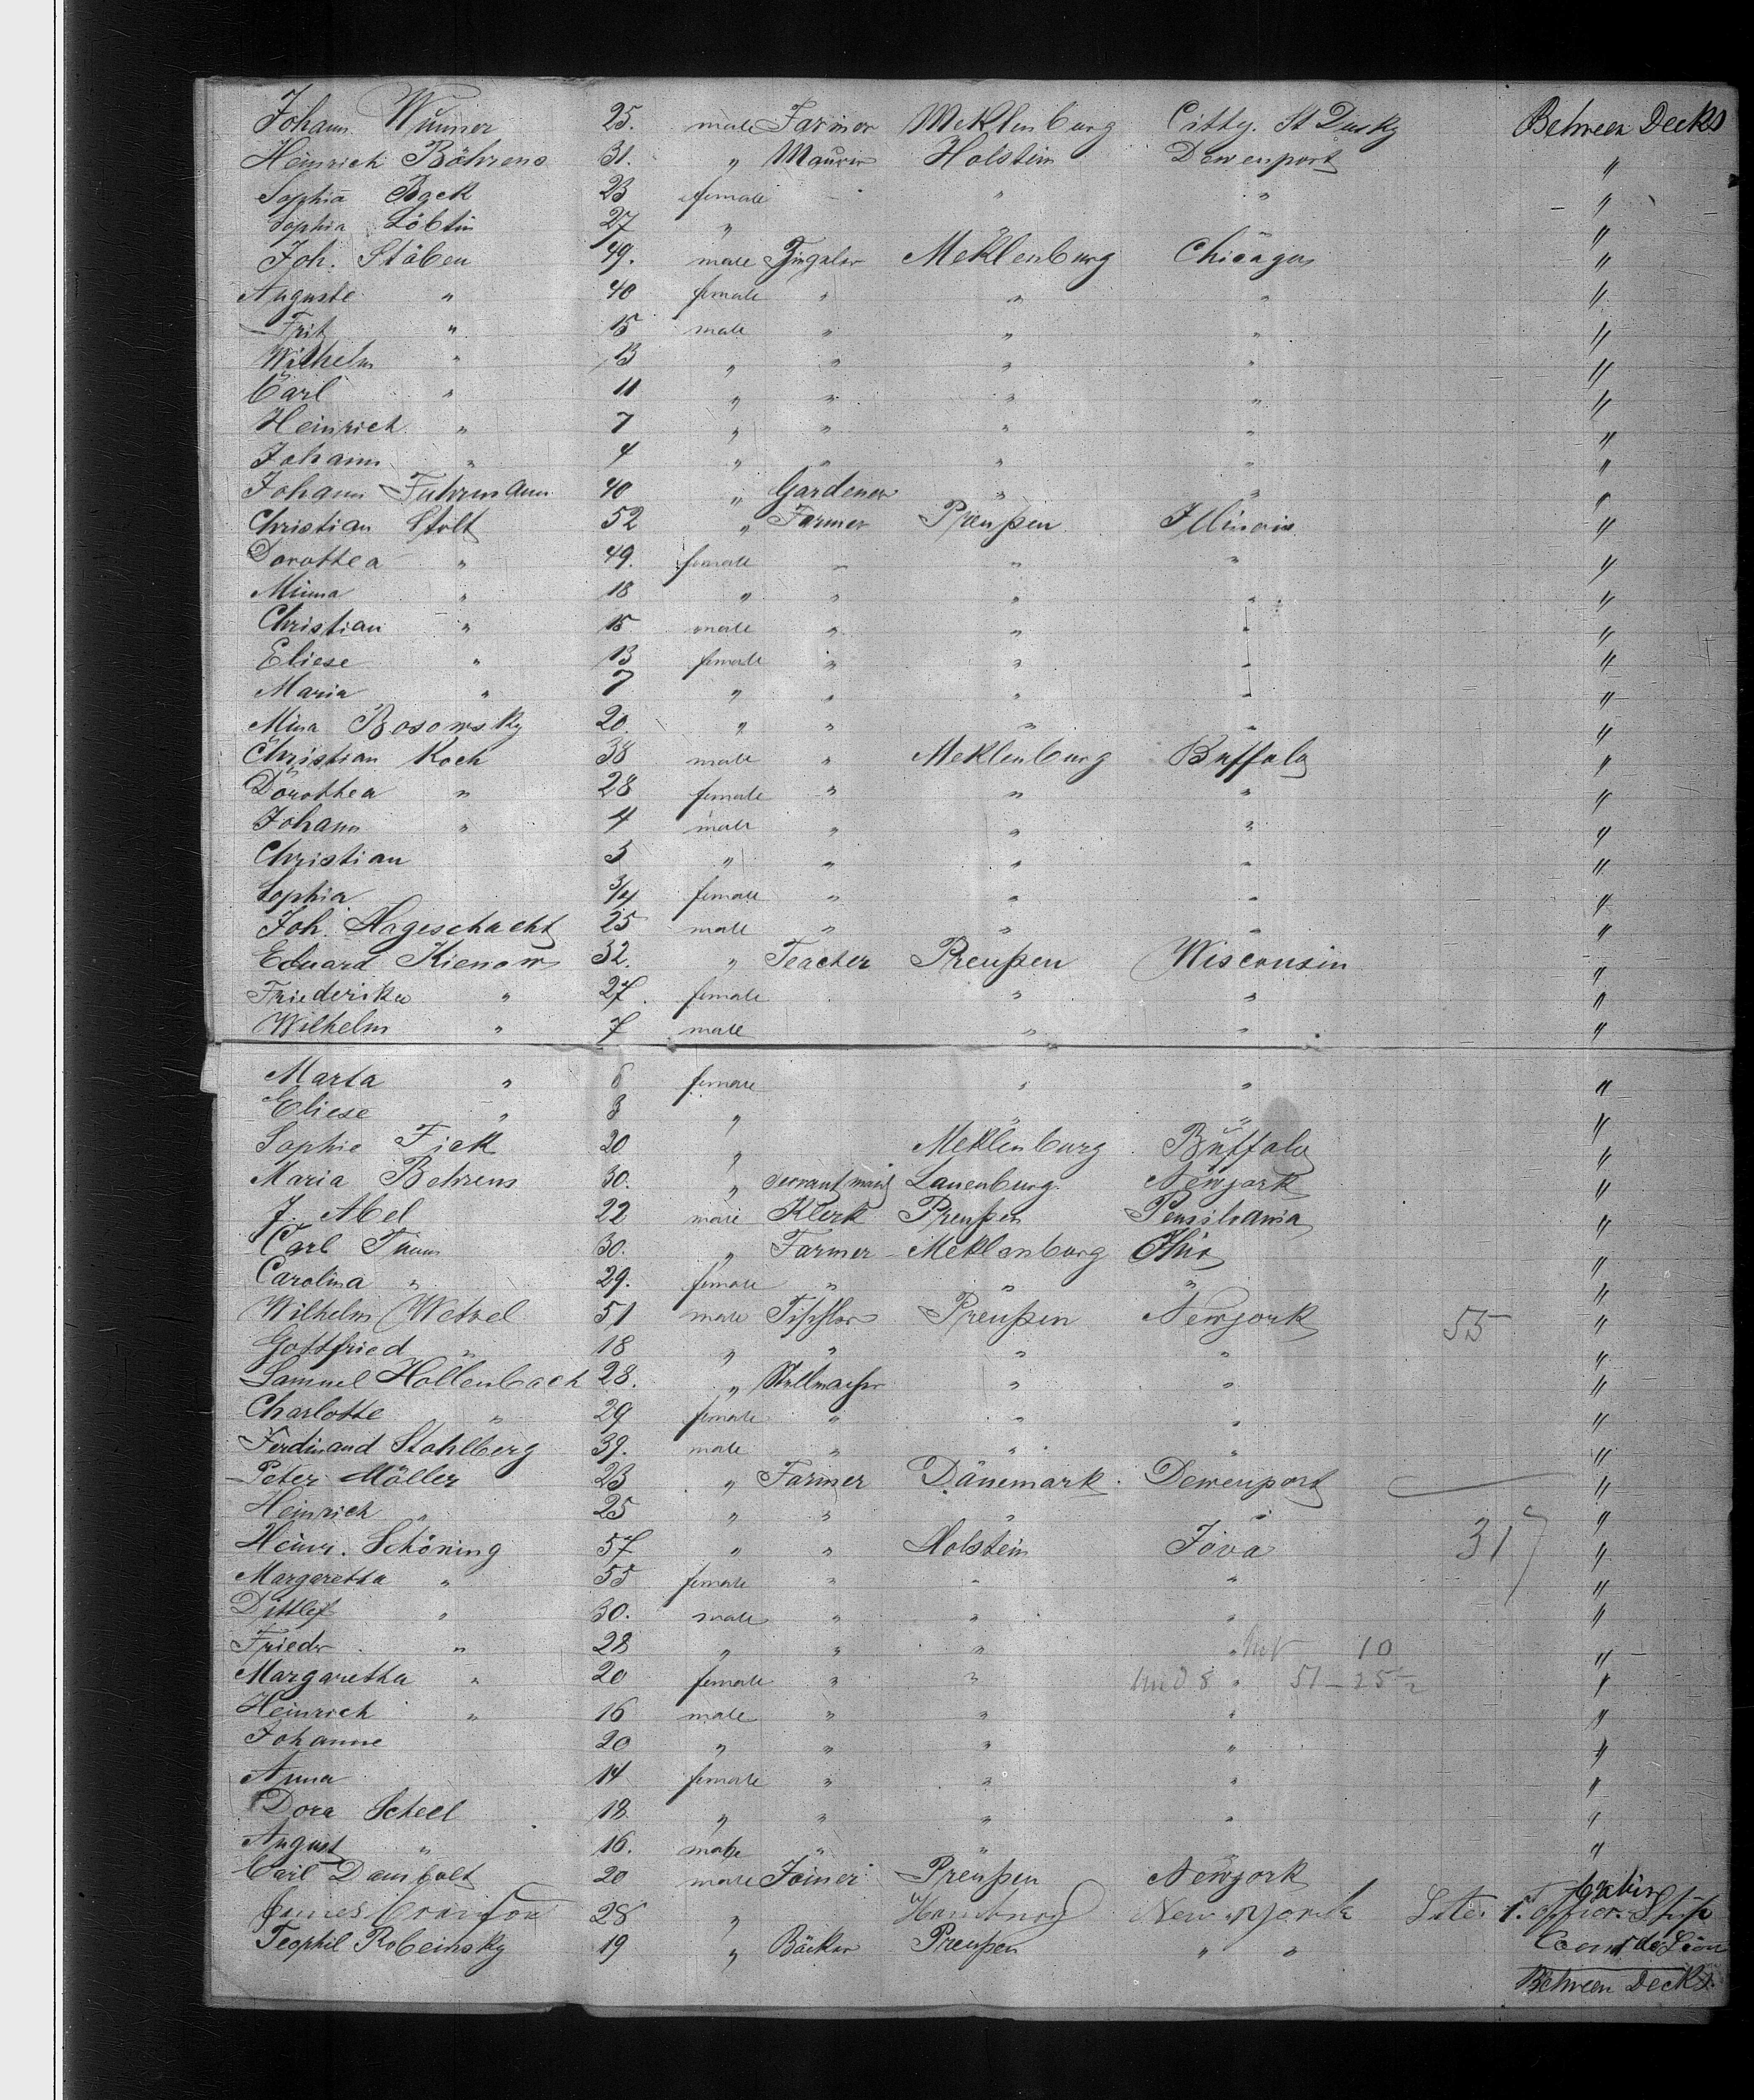 Johann Wünner 25. male Farmer Meklenburg Citty. St Dusky Between Decks
Heinrich Böhrens 31. " Maurer Holstein Dewenport "
Sophia Back 23 female " " "
Sophia Löbtin 27 " "
Joh. Stöben 49. male Meklenburg Chicago "
Auguste " 40 female " " " "
Fritz " 15 male " " " "
Wilhelm " 13 " " " " "
Carl " 11 " " " " "
Heinrich " 7 " " " " "
Johann " 4 " " " " "
Johann Fuhrmann 40 " Gardener " " "
Christian Stolt 52 " Farmer Preußen Illinois "
Dorothea " 49. female " " " "
Minna " 18 " " " " "
Christian " 15 male " " " "
Eliese " 13 female " " " "
Maria " 7 " " " " "
Mina Bosowsky 20. " " " " "
Christian Koch 38 male " Meklenburg Buffalo "
Dorothea " 28 female " " " "
Johann " 4 male " " " "
Christian 3 " " " " "
Sophia 3/4 female " " " "
Joh. Hageschacht 25 male " " " "
Eduard Kienow 32. " Teacher Preußen Wisconsin "
Friederike " 27. female " " "
Wilhelm " 7 male " " "
Marta " 6 female " " "
Eliese " 3 " " "
Sophie Fick 20 " Meklenburg Buffalo "
Maria Behrens 30. " servant maid Lauenburg. Newjork "
J. Abel 22 male Klerk Preußen Pensilvania "
Carl Timm 30. " Farmer Meklenburg Ohio "
Carolina " 29. female " " " "
Wilhelm Wetzel 51 male Tischler Preußen Newjork 55 "
Gottfried " 18 " " " " "
Samuel Hollenbach 28. " Stellmacher " " "
Charlotte " 29 female " " " "
Ferdinand Stahlberg 39. male " " " "
Peter Möller 23 " Farmer Dänemark. Dewenport "
Heinrich " 25 " " " " "
Heinr. Schöning 57 " " Holstein Jova 317 "
Margaretha " 55 female " " " "
Dittlef " 30. male " " " "
Friedr. " 28 " " " " 10 "
Margaretha " 20 female " " " 51 - 25 "
Heinrich " 16 male " " " "
Johanne 20 " " " " "
Anna 14 female " " " "
Dora Scheel 18 " " " " "
August " 16. male " " "
Carl 20 male Joiner Preußen Newjork
28 " Hamburg New York Ship
Teophil Robeinsky 19 " Bäcker Preußen " "
Between Decks.